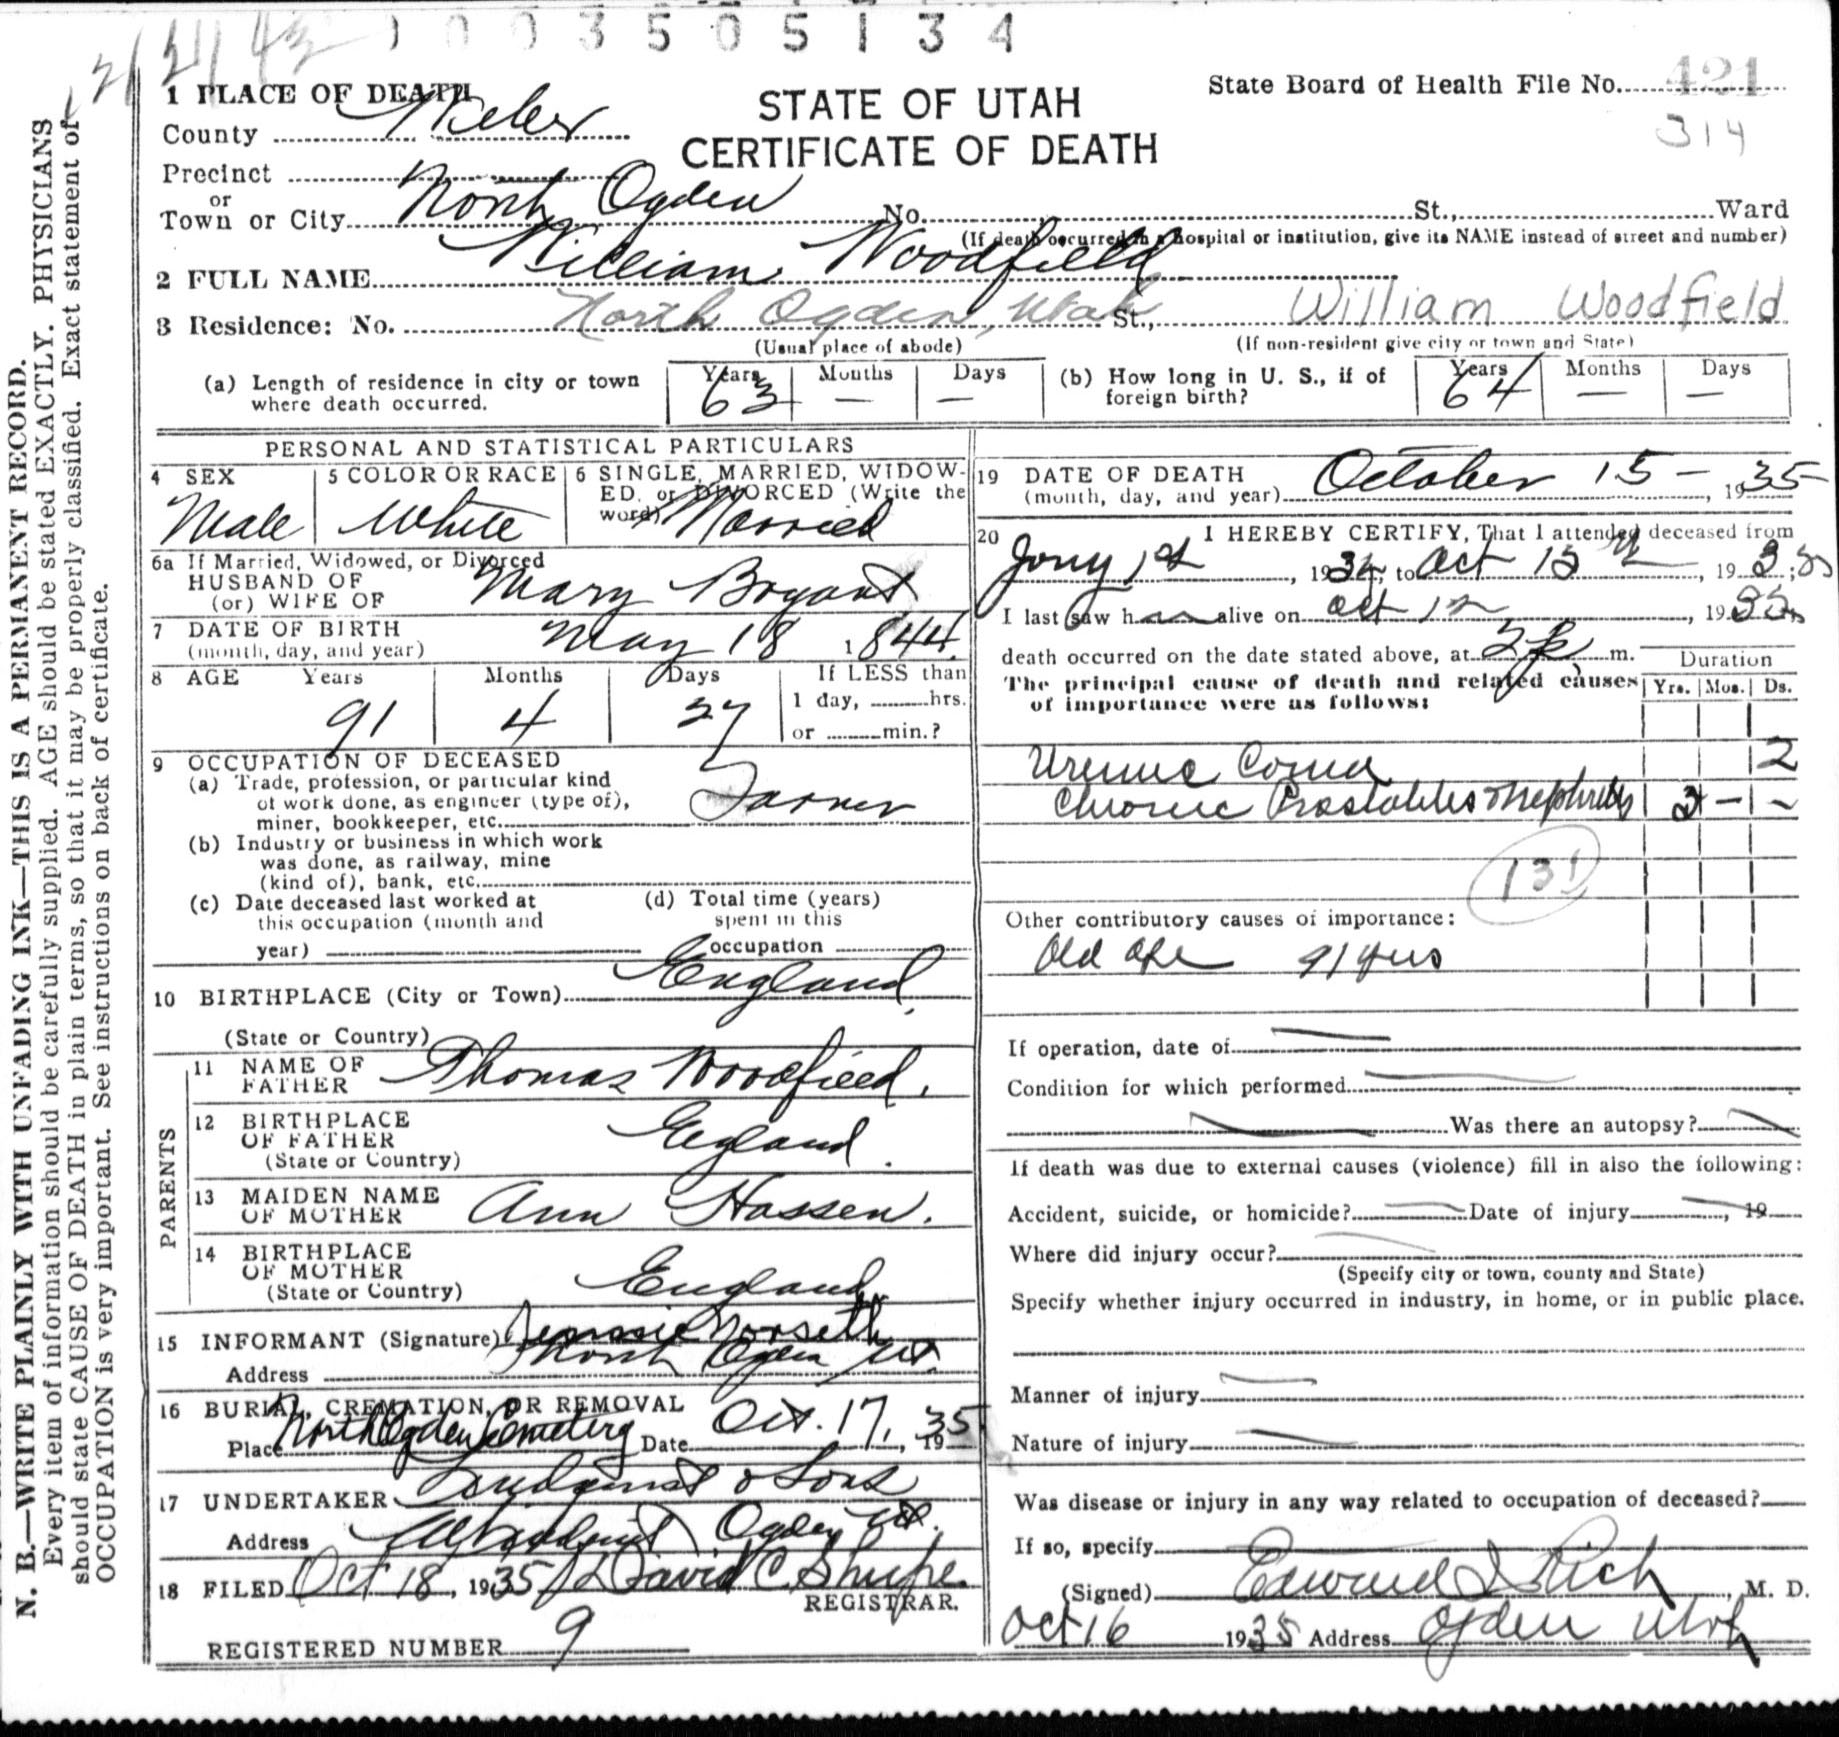 1003505134
1 PLACE OF DEATH
County Weber
STATE OF UTAH
CERTIFICATE OF DEATH
State Board of Health File No. 421
314
Precinct
or
Town or City North Ogden No. St., Ward
(If death occurred in a hospital or institution, give its NAME instead of street and number)
2 FULL NAME William Woodfield
3 Residence: No. North Ogden, Utah St., William Woodfield
(Usual place of abode) (If non-resident give city or town and State)
(a) Length of residence in city or town where death occurred. Years 63 Months — Days —
(b) How long in U. S., if of foreign birth? Years 64 Months — Days —
PERSONAL AND STATISTICAL PARTICULARS
4 SEX Male
5 COLOR OR RACE White
6 SINGLE, MARRIED, WIDOWED, or DIVORCED (Write the word) Married
6a If Married, Widowed, or Divorced
HUSBAND OF
(or) WIFE OF Mary Bryant
7 DATE OF BIRTH
(month, day, and year) May 18 1844.
8 AGE Years 91 Months 4 Days 27 If LESS than
1 day, hrs.
or min.?
9 OCCUPATION OF DECEASED
(a) Trade, profession, or particular kind
of work done, as engineer (type of),
miner, bookkeeper, etc. Farmer
(b) Industry or business in which work
was done, as railway, mine
(kind of), bank, etc.
(c) Date deceased last worked at
this occupation (month and
year)
(d) Total time (years)
spent in this
occupation
10 BIRTHPLACE (City or Town) England
(State or Country)
PARENTS
11 NAME OF
FATHER Thomas Woodfield.
12 BIRTHPLACE
OF FATHER
(State or Country) England.
13 MAIDEN NAME
OF MOTHER Ann Hassen.
14 BIRTHPLACE
OF MOTHER
(State or Country) England
15 INFORMANT (Signature) Norseth
Address North Ogden Ut.
16 BURIAL, CREMATION, OR REMOVAL
Place North Ogden Cemetery Date Oct. 17, 1935
17 UNDERTAKER Lindquist & Sons
Address Ogden Ut.
18 FILED Oct 18, 1935 David C. Shupe.
REGISTRAR.
REGISTERED NUMBER 9
19 DATE OF DEATH
(month, day, and year) October 15 – , 1935
20 I HEREBY CERTIFY, That I attended deceased from
Jany 1st, 1934, to Oct 15th, 1935
I last saw him alive on Oct 12, 1935
death occurred on the date stated above, at 2 p. m.
The principal cause of death and related causes
of importance were as follows:
Duration
Yrs. Mos. Ds.
Uremic Coma 2
Chronic Prostatitis & Nephritis 2 – –
131
Other contributory causes of importance:
Old age 91 yrs
If operation, date of —
Condition for which performed —
Was there an autopsy?
If death was due to external causes (violence) fill in also the following:
Accident, suicide, or homicide? — Date of injury — , 19
Where did injury occur? —
(Specify city or town, county and State)
Specify whether injury occurred in industry, in home, or in public place.
Manner of injury —
Nature of injury —
Was disease or injury in any way related to occupation of deceased?
If so, specify
(Signed) Edward I Rich, M. D.
Oct 16 1935 Address Ogden Utah
N. B.—WRITE PLAINLY WITH UNFADING INK—THIS IS A PERMANENT RECORD.
Every item of information should be carefully supplied. AGE should be stated EXACTLY. PHYSICIANS
should state CAUSE OF DEATH in plain terms, so that it may be properly classified. Exact statement of
OCCUPATION is very important. See instructions on back of certificate.